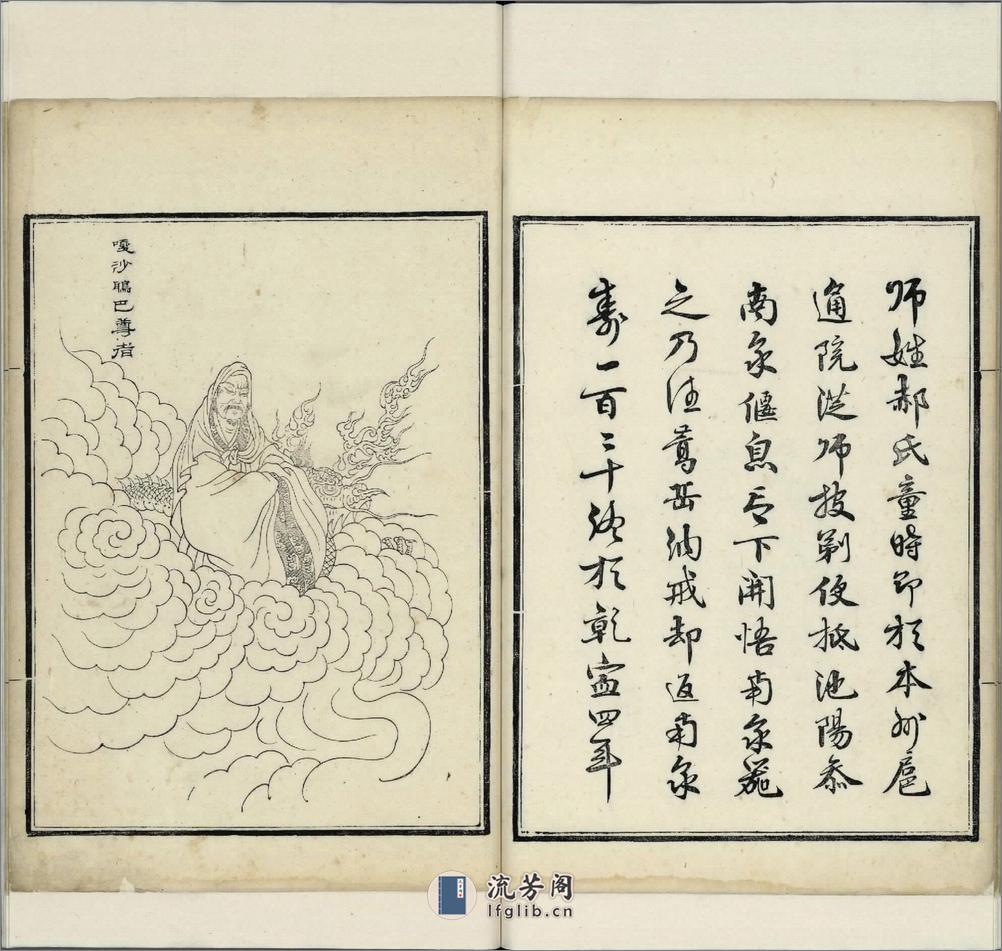 师姓郝氏童時即於本州扈
通院從师披剃便抵池陽叅
南泉偃息之下開悟南泉器
之乃往嵩岳納戒却返南泉
壽一百二十終於乾寧四年
嘎沙鴉巴尊者
流芳阁
lfglib.cn